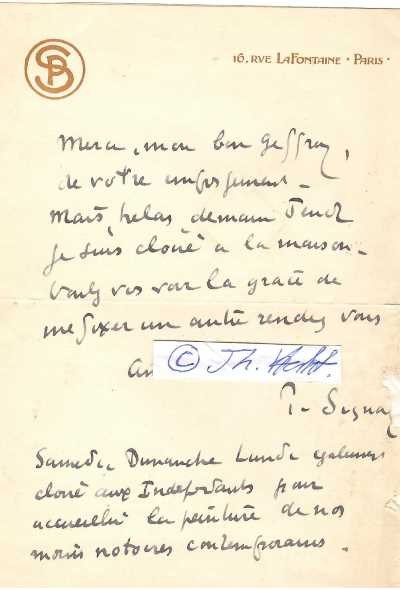 SP
16. RVE LAFONTAINE · PARIS ·
Merci, mon bon Geffroy,
de votre
Mais, hélas, demain Jeudi
je suis cloué à la maison.
Voulez vous avoir la grace de
me fixer un autre rendez vous
© Th. Hecht.
P. Signac
Samedi Dimanche Lundi également
cloué aux Indépendants pour
accueillir la peinture de nos
moins notoires contemporains.